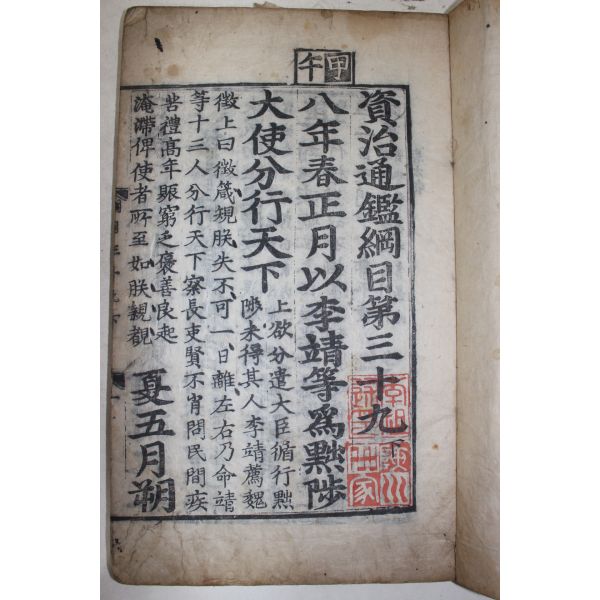 甲午
資治通鑑綱目第三十九下
八年春正月以李靖等爲黜陟
大使分行天下
上欲分遣大臣循行黜
陟未得其人李靖薦魏
徵上曰徵箴規朕失不可一日離左右乃命靖
等十三人分行天下察長吏賢不肖問民間疾
苦禮高年賑窮乏褒善良起
淹滯俾使者所至如朕親覩
夏五月朔